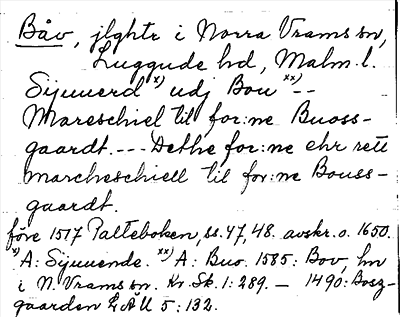 Båv, jlghtr i Norra Vrams sn,
Luggude hd, Malm. l.
Sijuuerd x) udj Bou xx) --
Mareschiel til for:ne Buoss-
gaardt. --- Dethe for:ne ehr rett
marcheschiell til for:ne Bouss-
gaardt.
före 1517 Palteboken, ss. 47, 48. avskr. o. 1650.
x) A: Sijuuende. xx) A: Buo. 1585: Bov, hn
i N. Vrams sn. Kr. Sk. 1: 289. — 1490: Bosz-
gaarden ÆAU 5: 132.